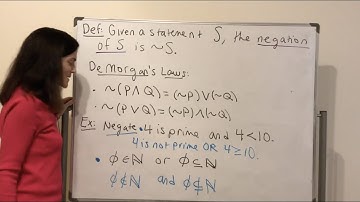 Def: Given a statement S, the negation
of S is ~S.
DeMorgan's Laws:
• ~(P∧Q)=(~P)∨(~Q)
• ~(P∨Q)=(~P)∧(~Q)
Ex: Negate • 4 is prime and 4<10.
4 is not prime OR 4≥10.
• ϕ∈ℕ or ϕ⊆ℕ
ϕ∉ℕ and ϕ⊈ℕ